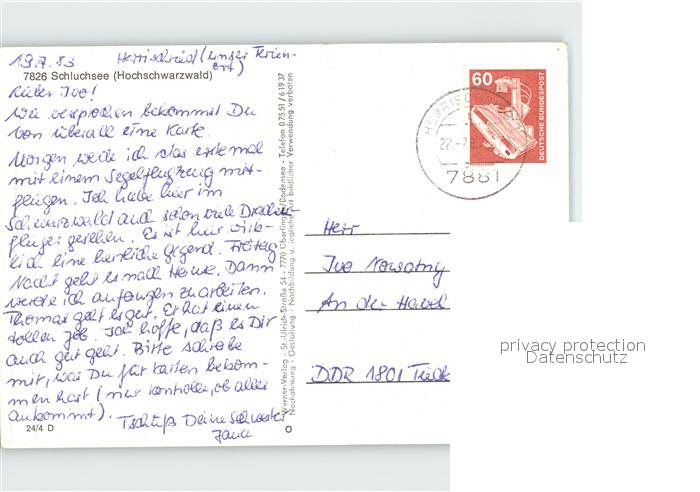 19.7.83 Herrischried (unser Ferien-
ort)
7826 Schluchsee (Hochschwarzwald)
Lieber Ivo!
Wie versprochen bekommst Du
von überall eine Karte.
Morgen werde ich das erste mal
mit einem Segelflugzeug mit-
fliegen. Ich habe hier im
Schwarzwald auch schon viele Drachen-
flieger gesehen. Es ist hier wirk-
lich eine herrliche Gegend. Freitag
Nacht geht es nach Hause. Dann
werde ich anfangen zu arbeiten.
Thomas geht es gut. Er hat einen
tollen Job. Ich hoffe, daß es Dir
auch gut geht. Bitte schreibe
mir, was Du für Karten bekom-
men hast (nur Kontrolle, ob alles
ankommt).
Tschüß Deine Schwester
Jana
24/4 D
Werner-Verlag · St.-Ulrich-Straße 54 · 7770 Überlingen/Bodensee · Telefon 07551/61937
Nachahmung · Gestaltung · Nachbildung u. jeglicher Art bildlicher Verwendung verboten
60
DEUTSCHE BUNDESPOST
HERRISCHRIED
22.-7.8
7881
Herr
Ivo Nowotny
An der Havel
DDR 1801
privacy protection
Datenschutz